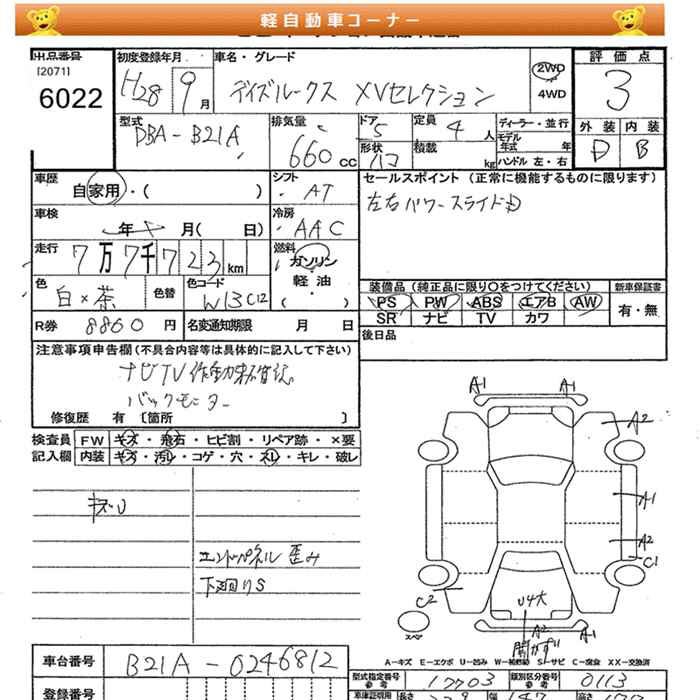 軽自動車コーナー
出品番号
[2071]
6022
初度登録年月
H28 9月
車名・グレード
デイズルークス XVセレクション
2WD
4WD
評価点
3
外装 内装
D B
型式
DBA-B21A
排気量
660cc
ドア 5
形状 ハコ
定員 4人
積載 kg
ディーラー・並行
モデル年式 年
ハンドル 左・右
車歴
自家用・( )
シフト
AT
セールスポイント (正常に機能するものに限ります)
左右パワースライドD
車検
年 月( 日)
冷房
AAC
走行
7万7千723km
燃料
ガソリン
軽油
( )
色
白×茶
色替
色コード
W13C12
装備品 (純正品に限り〇をつけてください)
PS PW ABS エアB AW
SR ナビ TV カワ
新車保証書
有・無
R券 8860円
名変通知期限 月 日
後日品
注意事項申告欄(不具合内容等は具体的に記入して下さい)
ナビTV作動未確認
バックモニター
修復歴 有 〔箇所 〕
検査員記入欄
FW キズ・飛石・ヒビ割・リペア跡・×要
内装 キズ・汚レ・コゲ・穴・スレ・キレ・破レ
キズU
エンドパネル歪み
下廻りS
A1 A1
A2
A1
A2
C1
C2
U4大
A2
開かず
スペア
A1
A-キズ E-エクボ U-凹み W-補修跡 S-サビ C-腐食 XX-交換済
車台番号
B21A-0246812
型式指定番号
参考
17703
類別区分番号
参考
0113
登録番号
車庫証明用
参考
長さ
幅
高さ